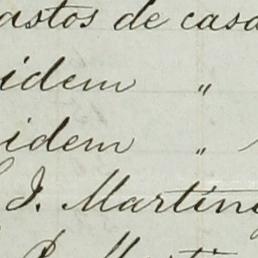 astos de casa
idem "
idem "
J. Martine